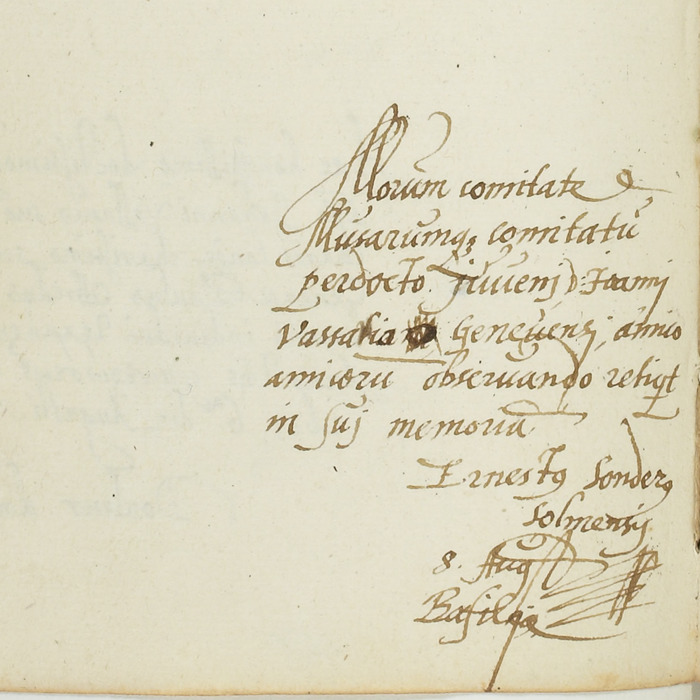 Morum comitate &
Musarumq; comitatu
perdocto Iuveni D. Ioanni
Genevensi, amico
amicorū observando reliqt
in suj memoriā
Ernestg Sonderg
Solmensis
8. Aug
Basileæ